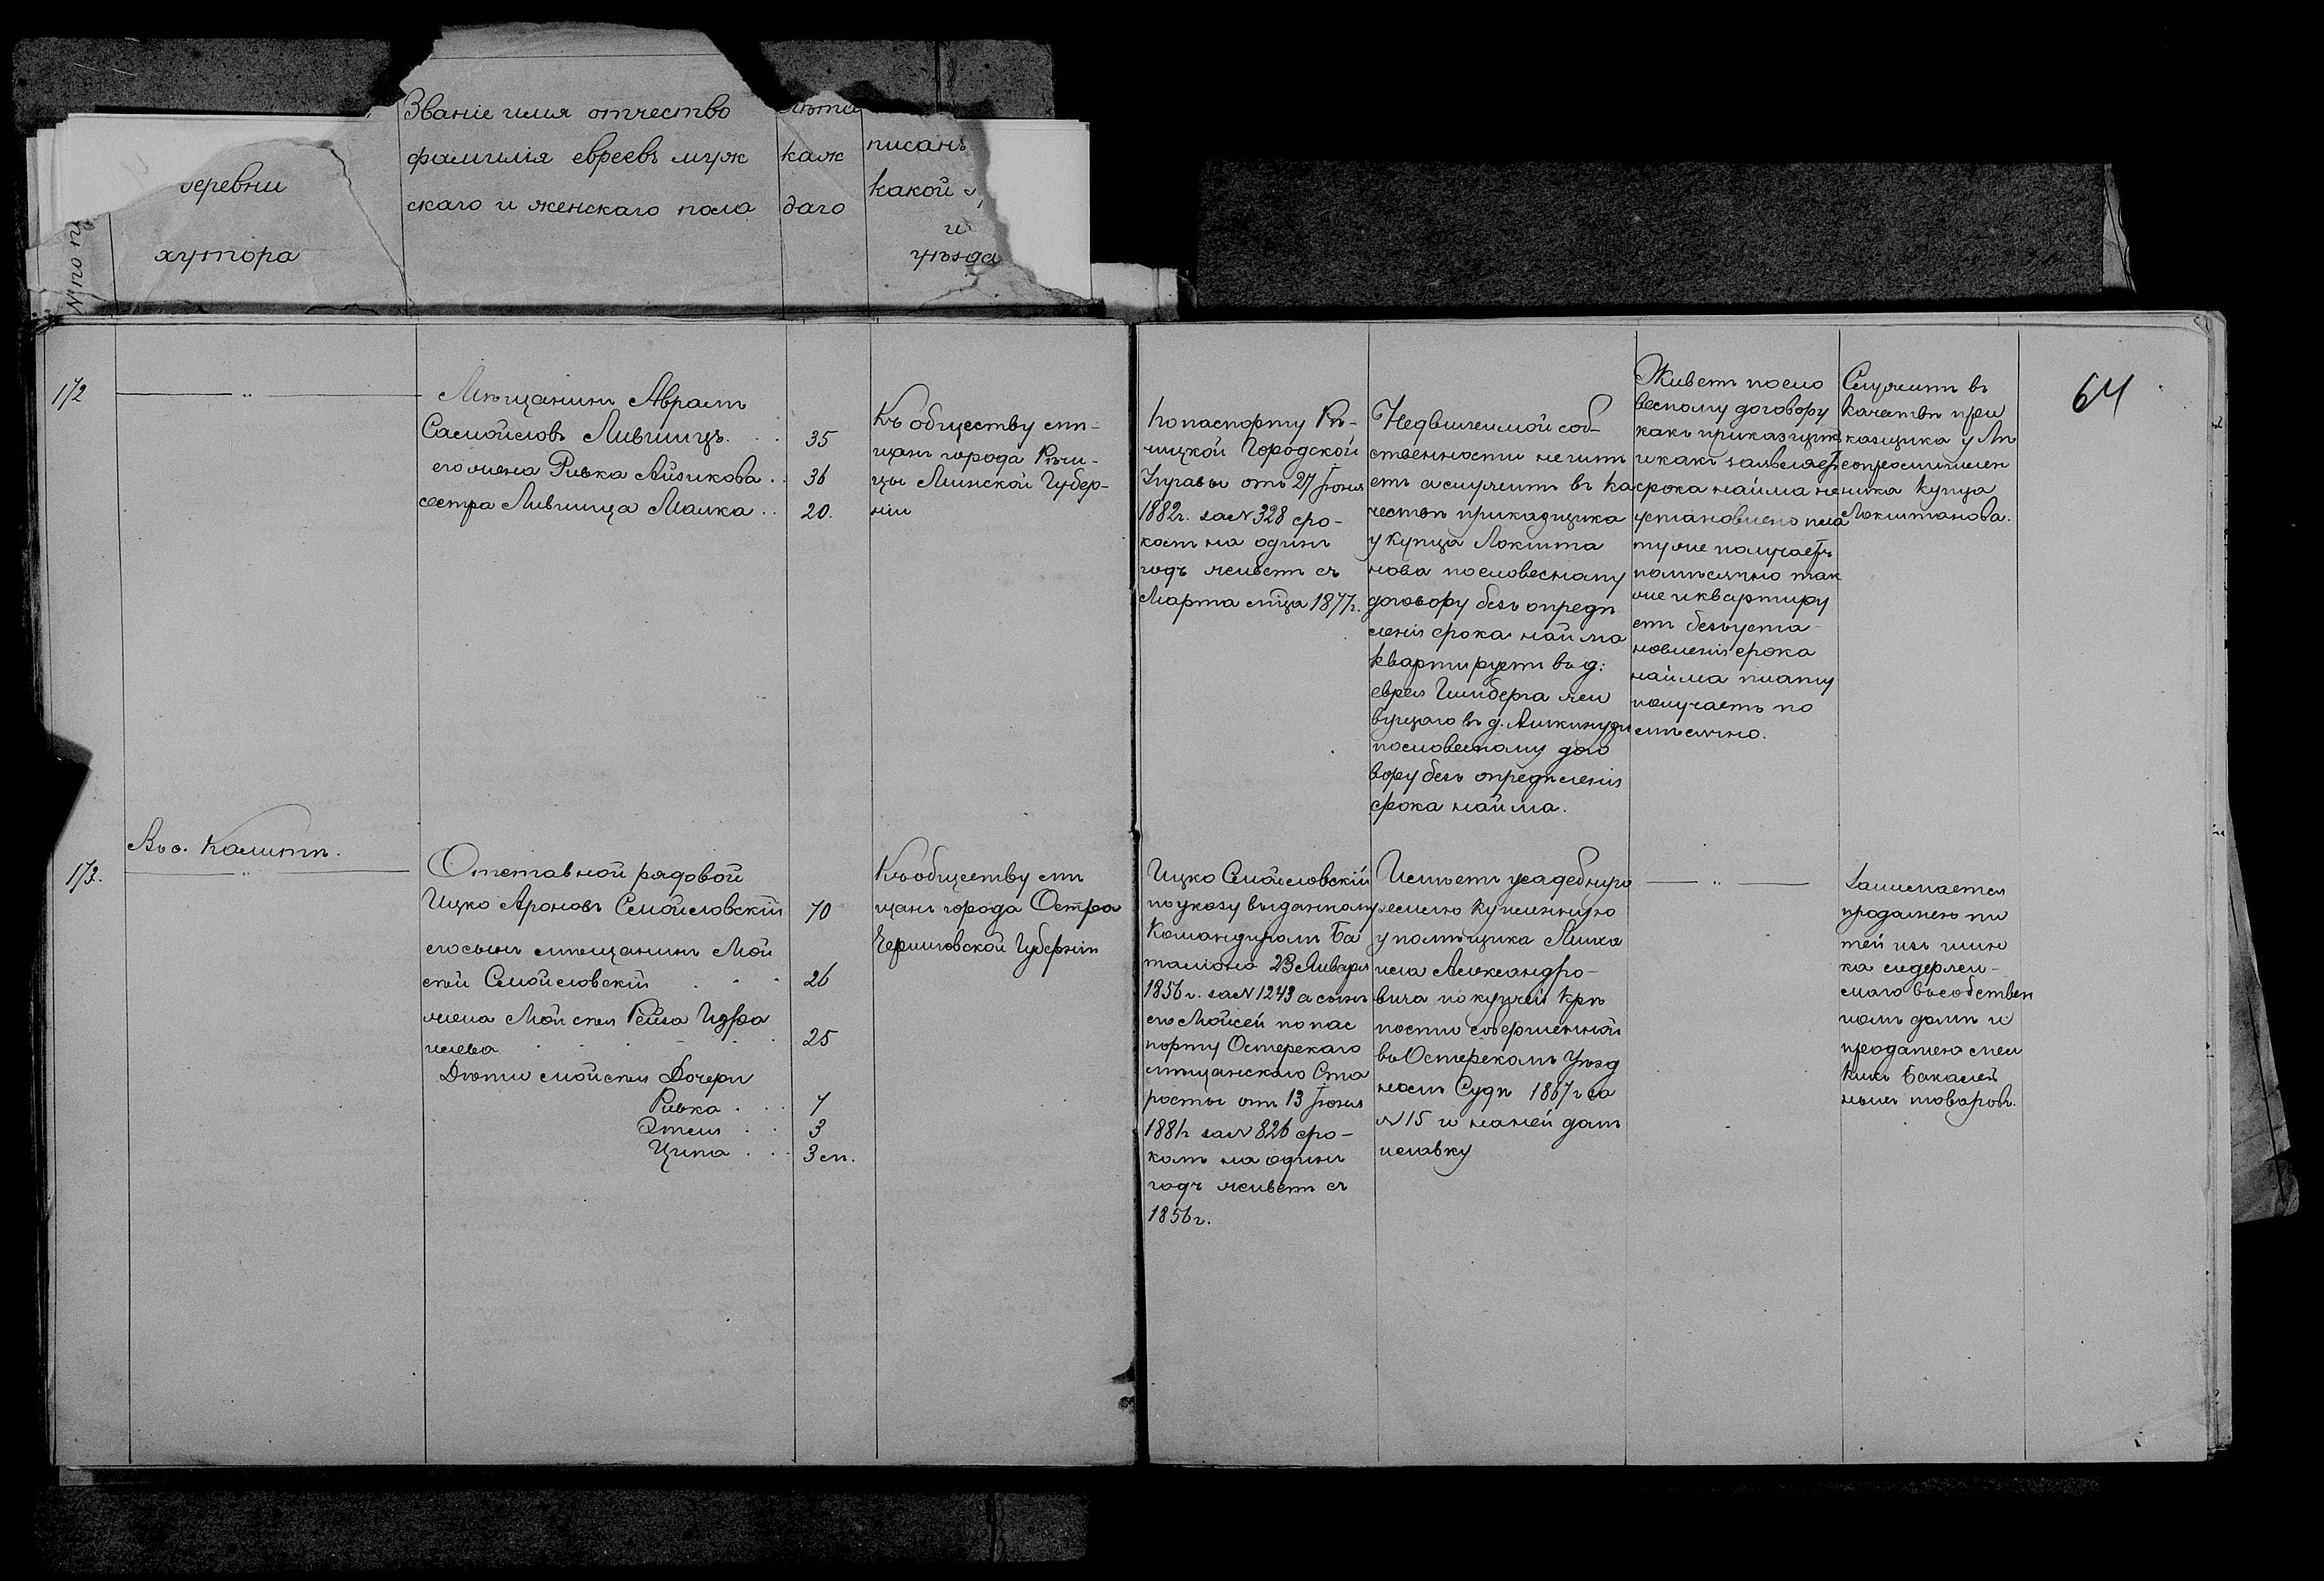 Званіе имя отчество
фамилія евреевъ муж
скаго и женскаго пола
лѣта
каж
даго
писанъ
какой
и
уѣзда
деревни
хутора
№ по
64
172
— „ —
Мѣщанинъ Абрамъ
Самойловъ Лившицъ . . 35
его жена Ривка Айзикова . . 36
сестра Лившица Малка . . 20.
Къ обществу мѣ-
щанъ города Рѣчи-
цы Минской Губер-
ніи
По паспорту Рѣ-
чицкой Городской
Управы от 27 Іюня
1882г. за № 328 сро-
комъ на одинъ
годъ живетъ съ
Марта м͠ца 1877г.
Недвижимой соб-
ственности не имѣ
етъ а служитъ въ ка
чествѣ прикащика
у купца Локшта
нова по словесному
договору безъ опредѣ
ленія срока найма
квартируетъ въ д:
еврея Гинзберга жи
вущаго въ д.
по словесному дого
вору безъ опредѣленія
срока найма.
Живетъ по сло
весному договору
какъ приказщикъ
и какъ заявляетъ
срока найма не
установлено пла
ту же получаетъ
помѣсячно так
же и квартиру
етъ безъ уста-
новленія срока
найма плату
получаетъ по
мѣсячно.
Служитъ въ
качествѣ при
казщика у Лѣ
сопромышлен
ника купца
Локштанова.
Въ с. Калитѣ.
173.
— „ —
Отставной рядовой
Ицко Ароновъ Смойловскій 70
его сынъ мѣщанинъ Мой
сей Смойловскій . . . 26
жена Мойсея Рейза Изра
илева . . . . . 25
Дѣти Мойсея Дочери
Ривка . . . 7
Этля . . 3
Ципа . . . 3 м.
Къ обществу мѣ
щанъ города Остра
Черниговской Губерніи
Ицко Смойловскій
по указу выданному
Командиромъ Ба
таліона 23 Января
1856г. за № 1243 а сынъ
его Мойсей по пас
порту Остерскаго
мѣщанскаго Ста
росты от 13 Іюня
1881г за № 826 сро-
комъ на одинъ
годъ живетъ съ
1856г.
Имѣетъ усадебную
землю купленную
у помѣщика Миха
ила Александро-
вича по купчей крѣ
пости совершенной
въ Остерскомъ Уѣзд
номъ Судѣ 1867г за
№ 15 и на ней домъ
и лавку
— „ —
Занимается
продажею пи
тей изъ шин
ка содержи-
маго въ собствен
номъ домѣ и
продажею мел
кихъ бакалей
ныхъ товаровъ.